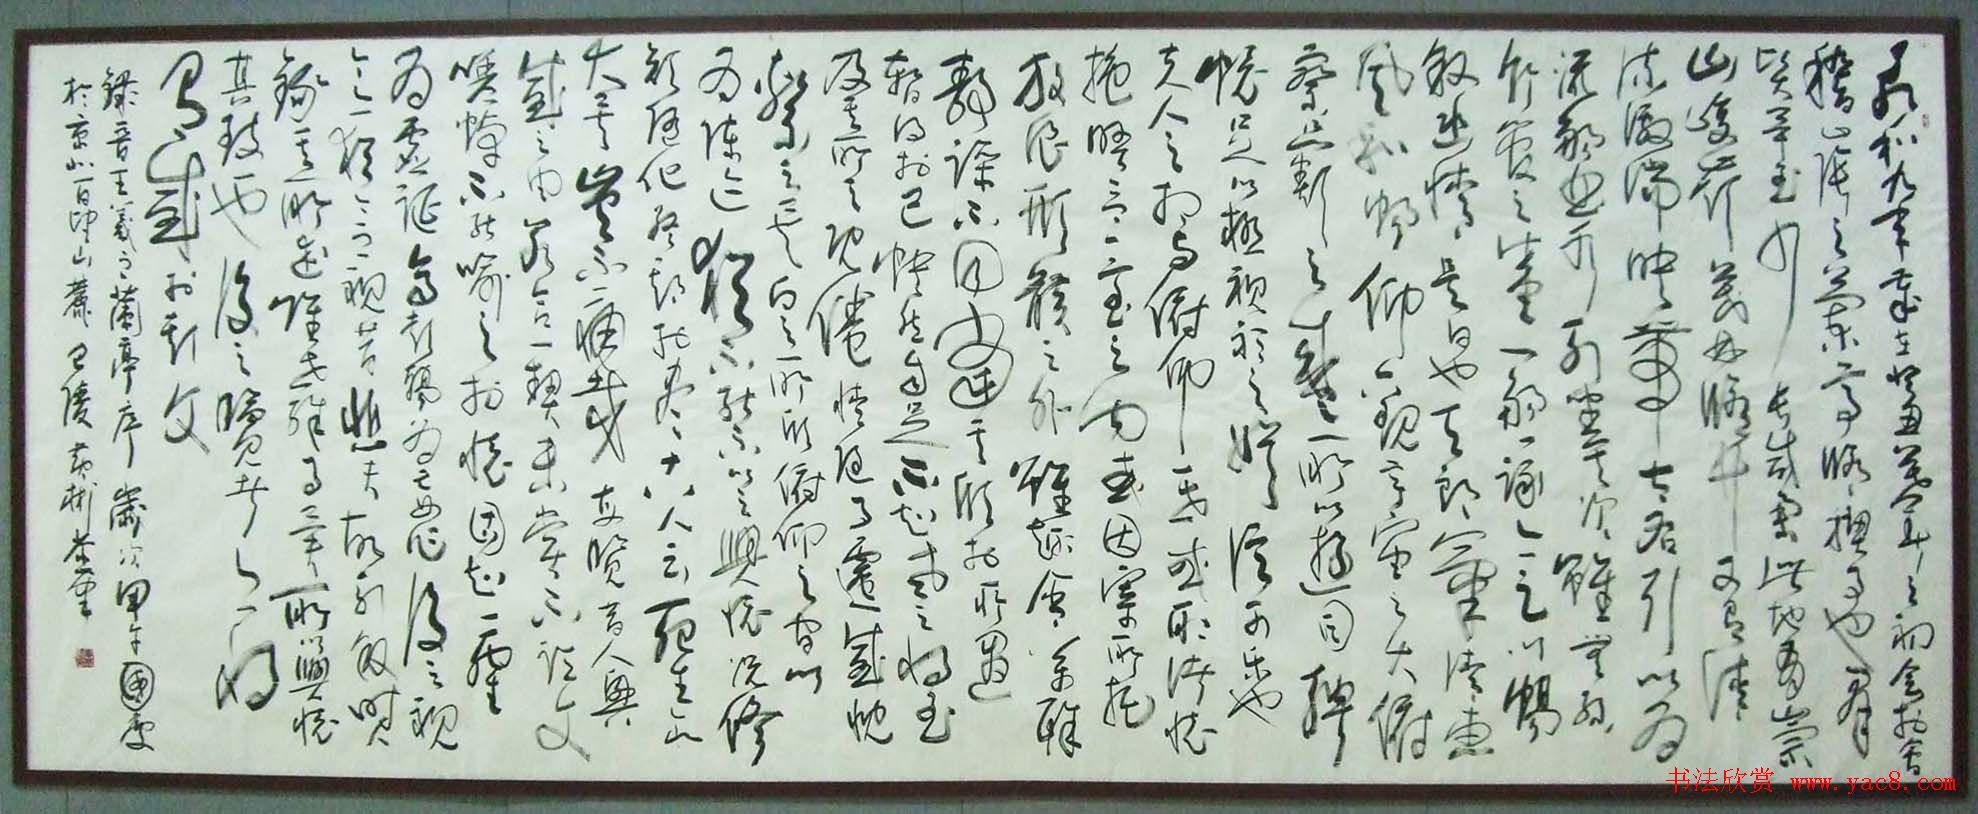 永和九年歲在癸丑暮春之初會於會
稽山陰之蘭亭脩禊事也群
賢畢至少長咸集此地有崇
山峻領茂林脩竹又有清
流激湍映帶左右引以為
流觴曲水列坐其次雖無絲
竹管弦之盛一觴一詠亦足以暢
敘幽情是日也天朗氣清惠
風和暢仰觀宇宙之大俯
察品類之盛所以遊目騁
懷足以極視聽之娛信可樂也
夫人之相與俯仰一世或取諸懷
抱悟言一室之內或因寄所託
放浪形骸之外雖趣舍萬殊
靜躁不同當其欣於所遇
暫得於己怏然自足不知老之將至
及其所之既倦情隨事遷感慨
繫之矣向之所欣俯仰之間以
為陳迹猶不能不以之興懷況脩
短隨化終期於盡古人云死生亦
大矣豈不痛哉每覽昔人興
感之由若合一契未嘗不臨文
嗟悼不能喻之於懷固知一死生
為虛誕齊彭殤為妄作後之視
今亦猶今之視昔悲夫故列敘時人
錄其所述雖世殊事異所以興懷
其致一也後之覽者亦將
有感於斯文
錄晉王羲之蘭亭序歲次甲午國慶
於京 百望山麓巴陵黃彬
书法欣赏 www.yac8.com